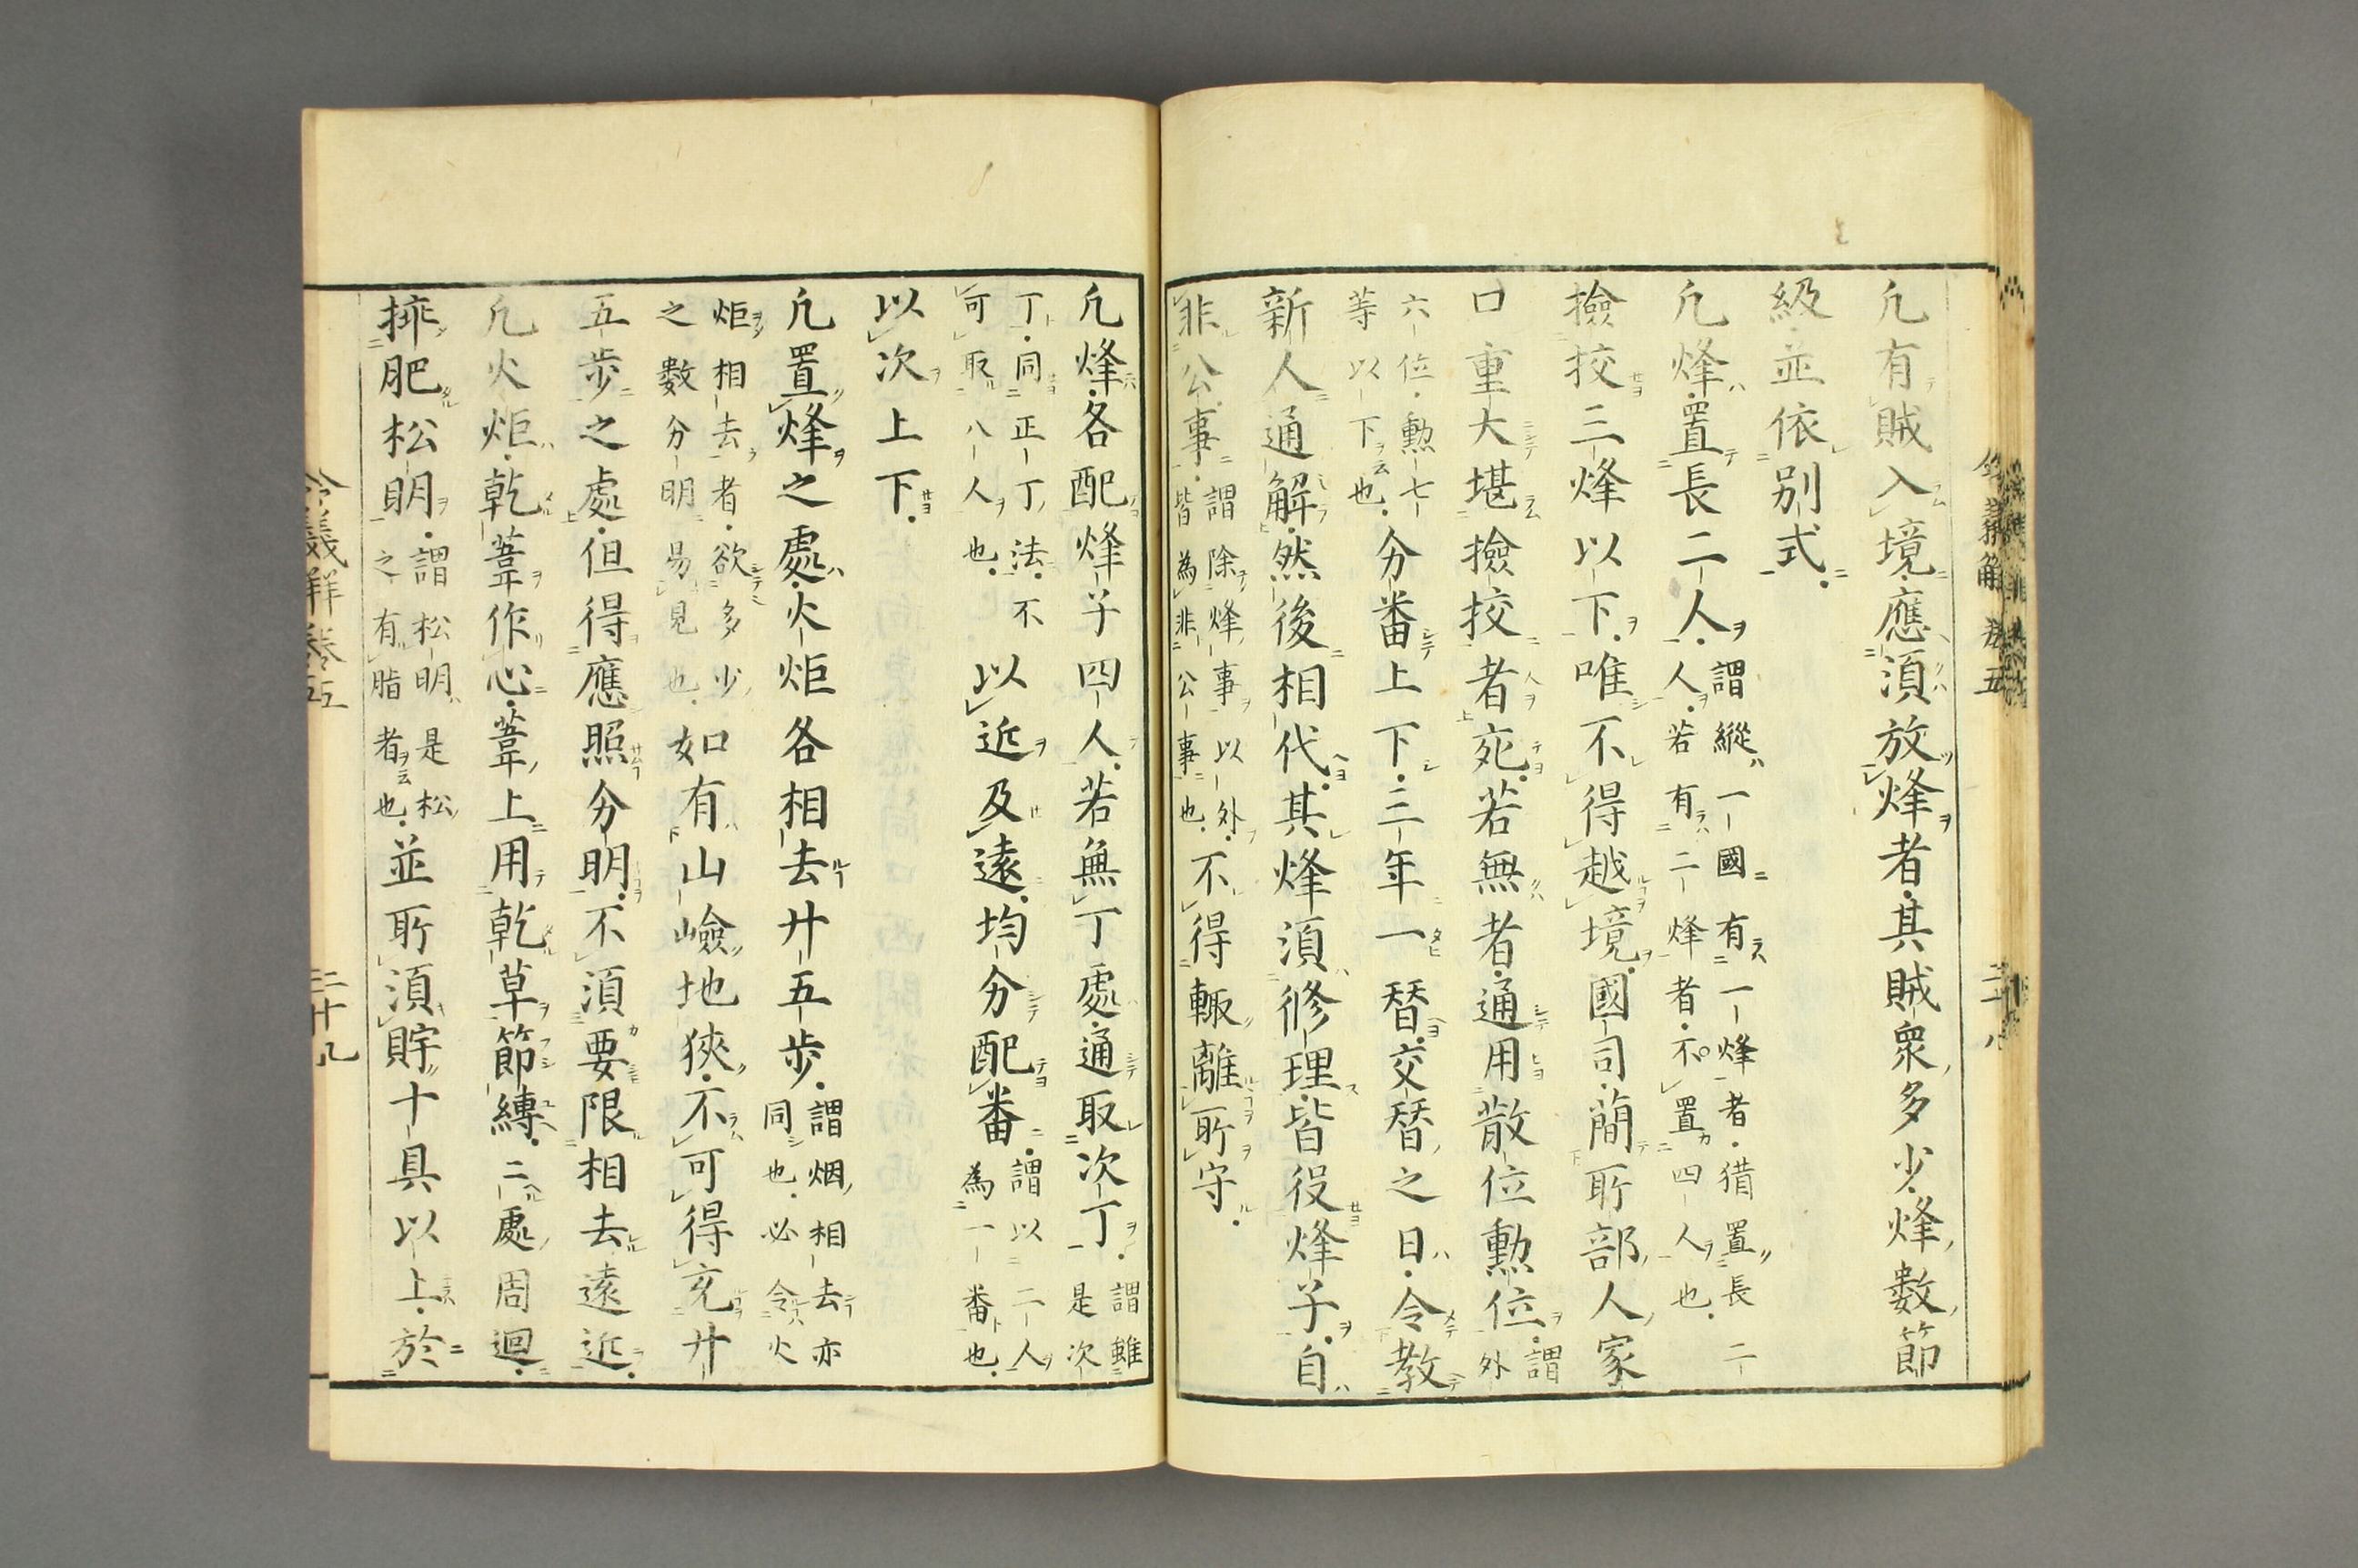 令義解卷五 二十八
凢有賊入境應須放烽者其賊衆多少烽數節
級並依別式
凢烽置長二人謂縱一國有一烽者猶置長二
人若有二烽者不置四人也
撿挍三烽以下唯不得越境國司蕳所部人家
口重大堪撿挍者宛若無者通用散位勳位謂外
六位勳七
等以下也分番上下三年一替交替之日令教
新人通解然後相代其烽須修理皆役烽子自
非公事謂除烽事以外
皆為非公事也不得輙離所守
凢烽各配烽子四人若無丁處通取次丁謂雖
是次
丁同正丁法不
可取八人也以近及遠均分配番謂以二人
為一番也
以次上下
凢置烽之處火炬各相去廿五步謂烟相去亦
同也必令火
炬相去者欲多少
之數分明易見也如有山嶮地狹不可得充廿
五步之處但得應照分明不須要限相去遠近
凢火炬乾葦作心葦上用乾草節縛二處周迴
挿肥松明謂松明是松
之有脂者也並所須貯十具以上於
令義解卷五 二十九